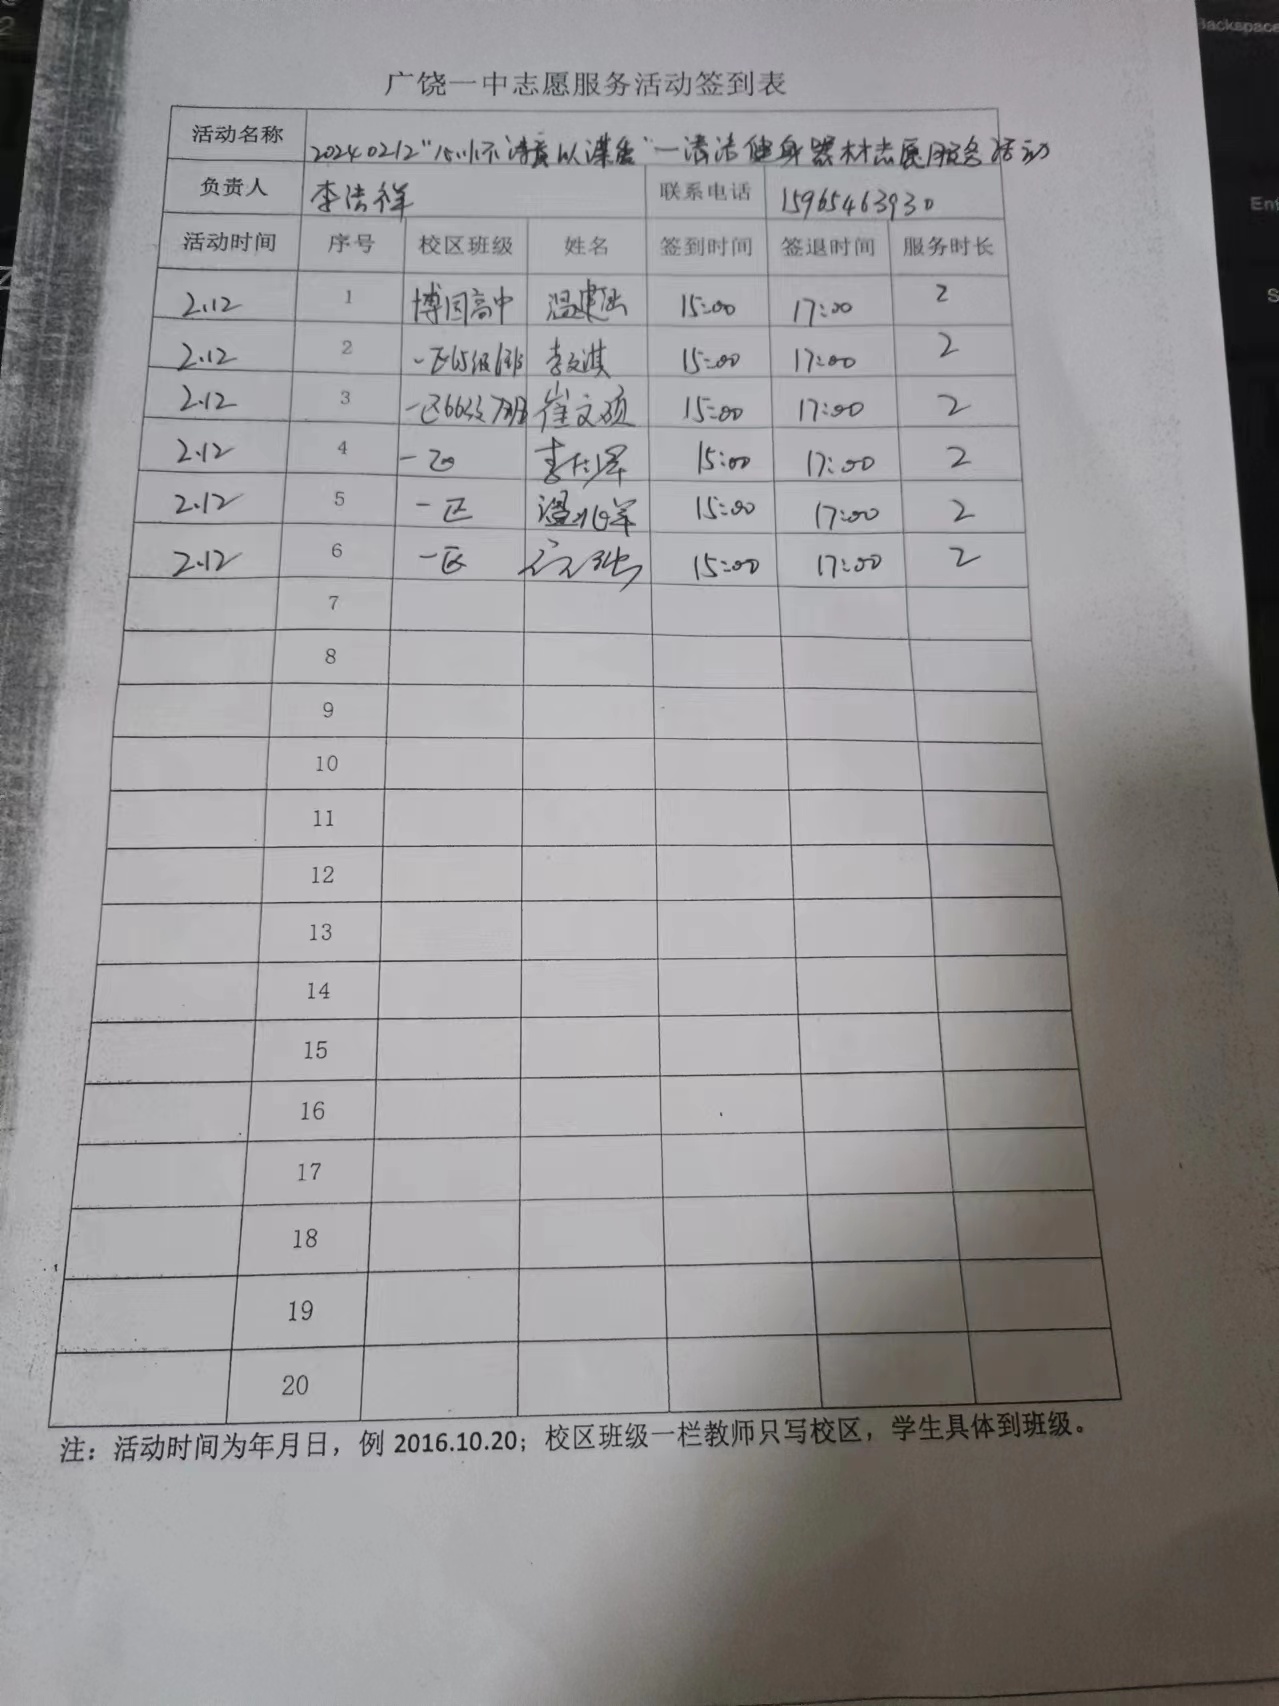 广饶一中志愿服务活动签到表
活动名称 20240212 清洁健身器材志愿服务活动
负责人 李洁祥 联系电话 15965463930
活动时间 序号 校区班级 姓名 签到时间 签退时间 服务时长
2.12 1 博园高中 15:00 17:00 2
2.12 2 一区65级6班 李文淇 15:00 17:00 2
2.12 3 一区66级7班 崔文硕 15:00 17:00 2
2.12 4 一区 15:00 17:00 2
2.12 5 一区 15:00 17:00 2
2.12 6 一区 15:00 17:00 2
7
8
9
10
11
12
13
14
15
16
17
18
19
20
注：活动时间为年月日，例 2016.10.20；校区班级一栏教师只写校区，学生具体到班级。
Backspace